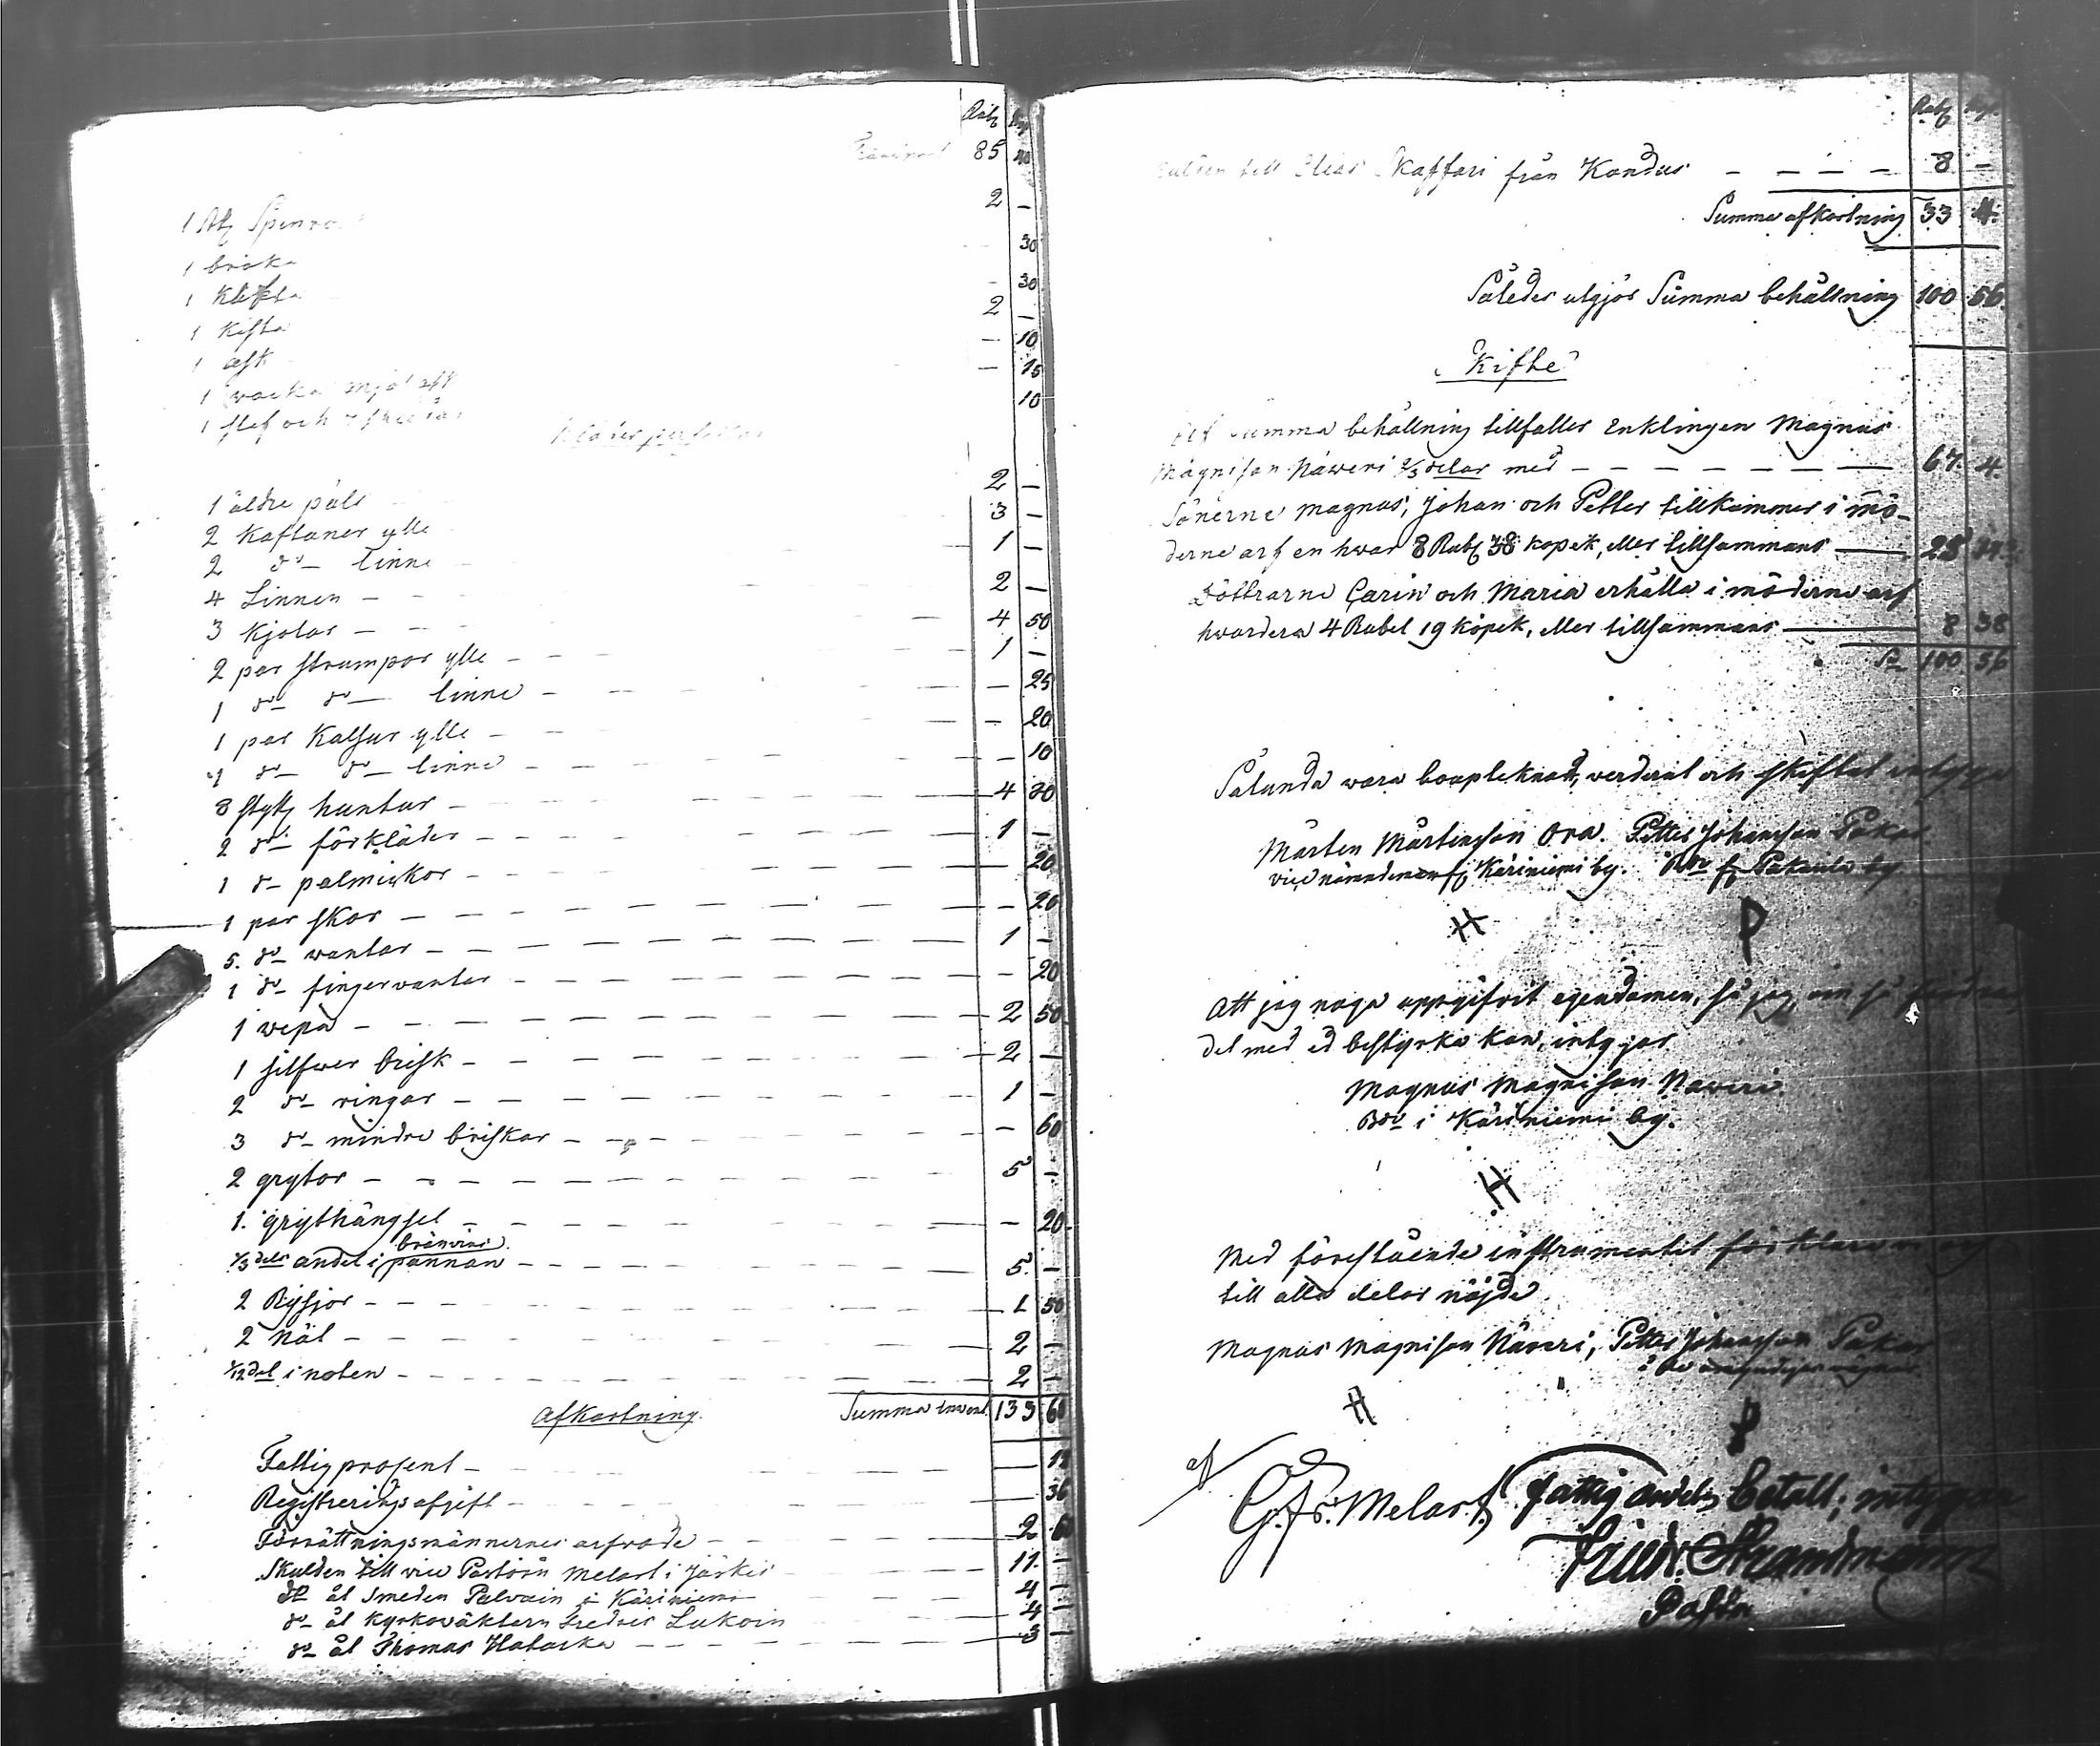 Rub Kop
Transport 85
1 st Spinnrock 2 –
1 bråka – 30
1 klifta – 30
1 kista 2 –
1 ask – 10
1 – 15
1 slef och 10
Kläderpersedlar
1 äldre päls 2 –
2 kaftaner ylle 3 –
2 do linne 1 –
4 Linnen 2 –
3 kjolar 4 50
2 par strumpor ylle 1 –
1 do do linne – 25
1 par kalsur ylle – 20
1 do do linne – 10
8 styck huntur 4 20
2 do förkläder 1 –
1 do palmiskor – 20
1 par skor – 20
5. do wantar 1 –
1 do fingervantar – 20
1 wepa 2 50
1 silfwer brisk 2 –
2 do ringar 1 –
3 do mindre briskar – 60
2 grytor 5 –
1. grythängsel – 20
1/3 dels andel i bränvins pannan 5. –
2 Rysjor 1 50
2 Nät 2 –
1/12 del i noten 2 –
Afkortning. Summa Invent. 133 60
Fattigprosent – 18
Registreringsafgift – 36
Förrättningsmännernes arfvode 2 60
Skulden till vice Pastorn Melart i Järkis 11. –
do åt Smeden Palvain i Käriniemi 4 –
do åt Kyrkoväktarn Fredric Lukoin 4 –
do åt Thomas Hatacka 3 –
Rub Kop
till Elias Skaffari från Kondus 8 –
Summa afkortning 33 4.
Således utgjör Summa behållning 100 56.
Skifte
Af Summa behållning tillfaller Enklingen Magnus
Magnison Näweri 2/3 delar med 67. 4.
Sönerne Magnus, Johan och Petter tillkommer i mö-
derne arf en hwar 8 Rub 38 kopek, eller tillsammans 25
Döttrarne Carin och Maria erhålla i möderne arf
hvardera 4 Rubel 19 kopek, eller tillsammans 8 38
Sa 100 56
Salunda vara bouptecknadt, verderat och skiftat intygga
Mårten Mårtensson Ora. Petter Johansson Pukar
vice nämndeman f. Käriniemi by. Bde f. Pukaula by
H P
Att jag noga uppgifvit egendomen, så jag, om så fordras,
det med ed bestyrka kan, intygar
Magnus Magnison Näveri.
Bde i Käriniemi by.
H
Med förestående instrumentet förklara
till alla delar nöjde
Magnus Magnison Näveri, Petter Johansson Pukar
H P
af
G. Fr. Melart. Fattig andeln betalt; intygar
Fredr. Strandmann
Pastor